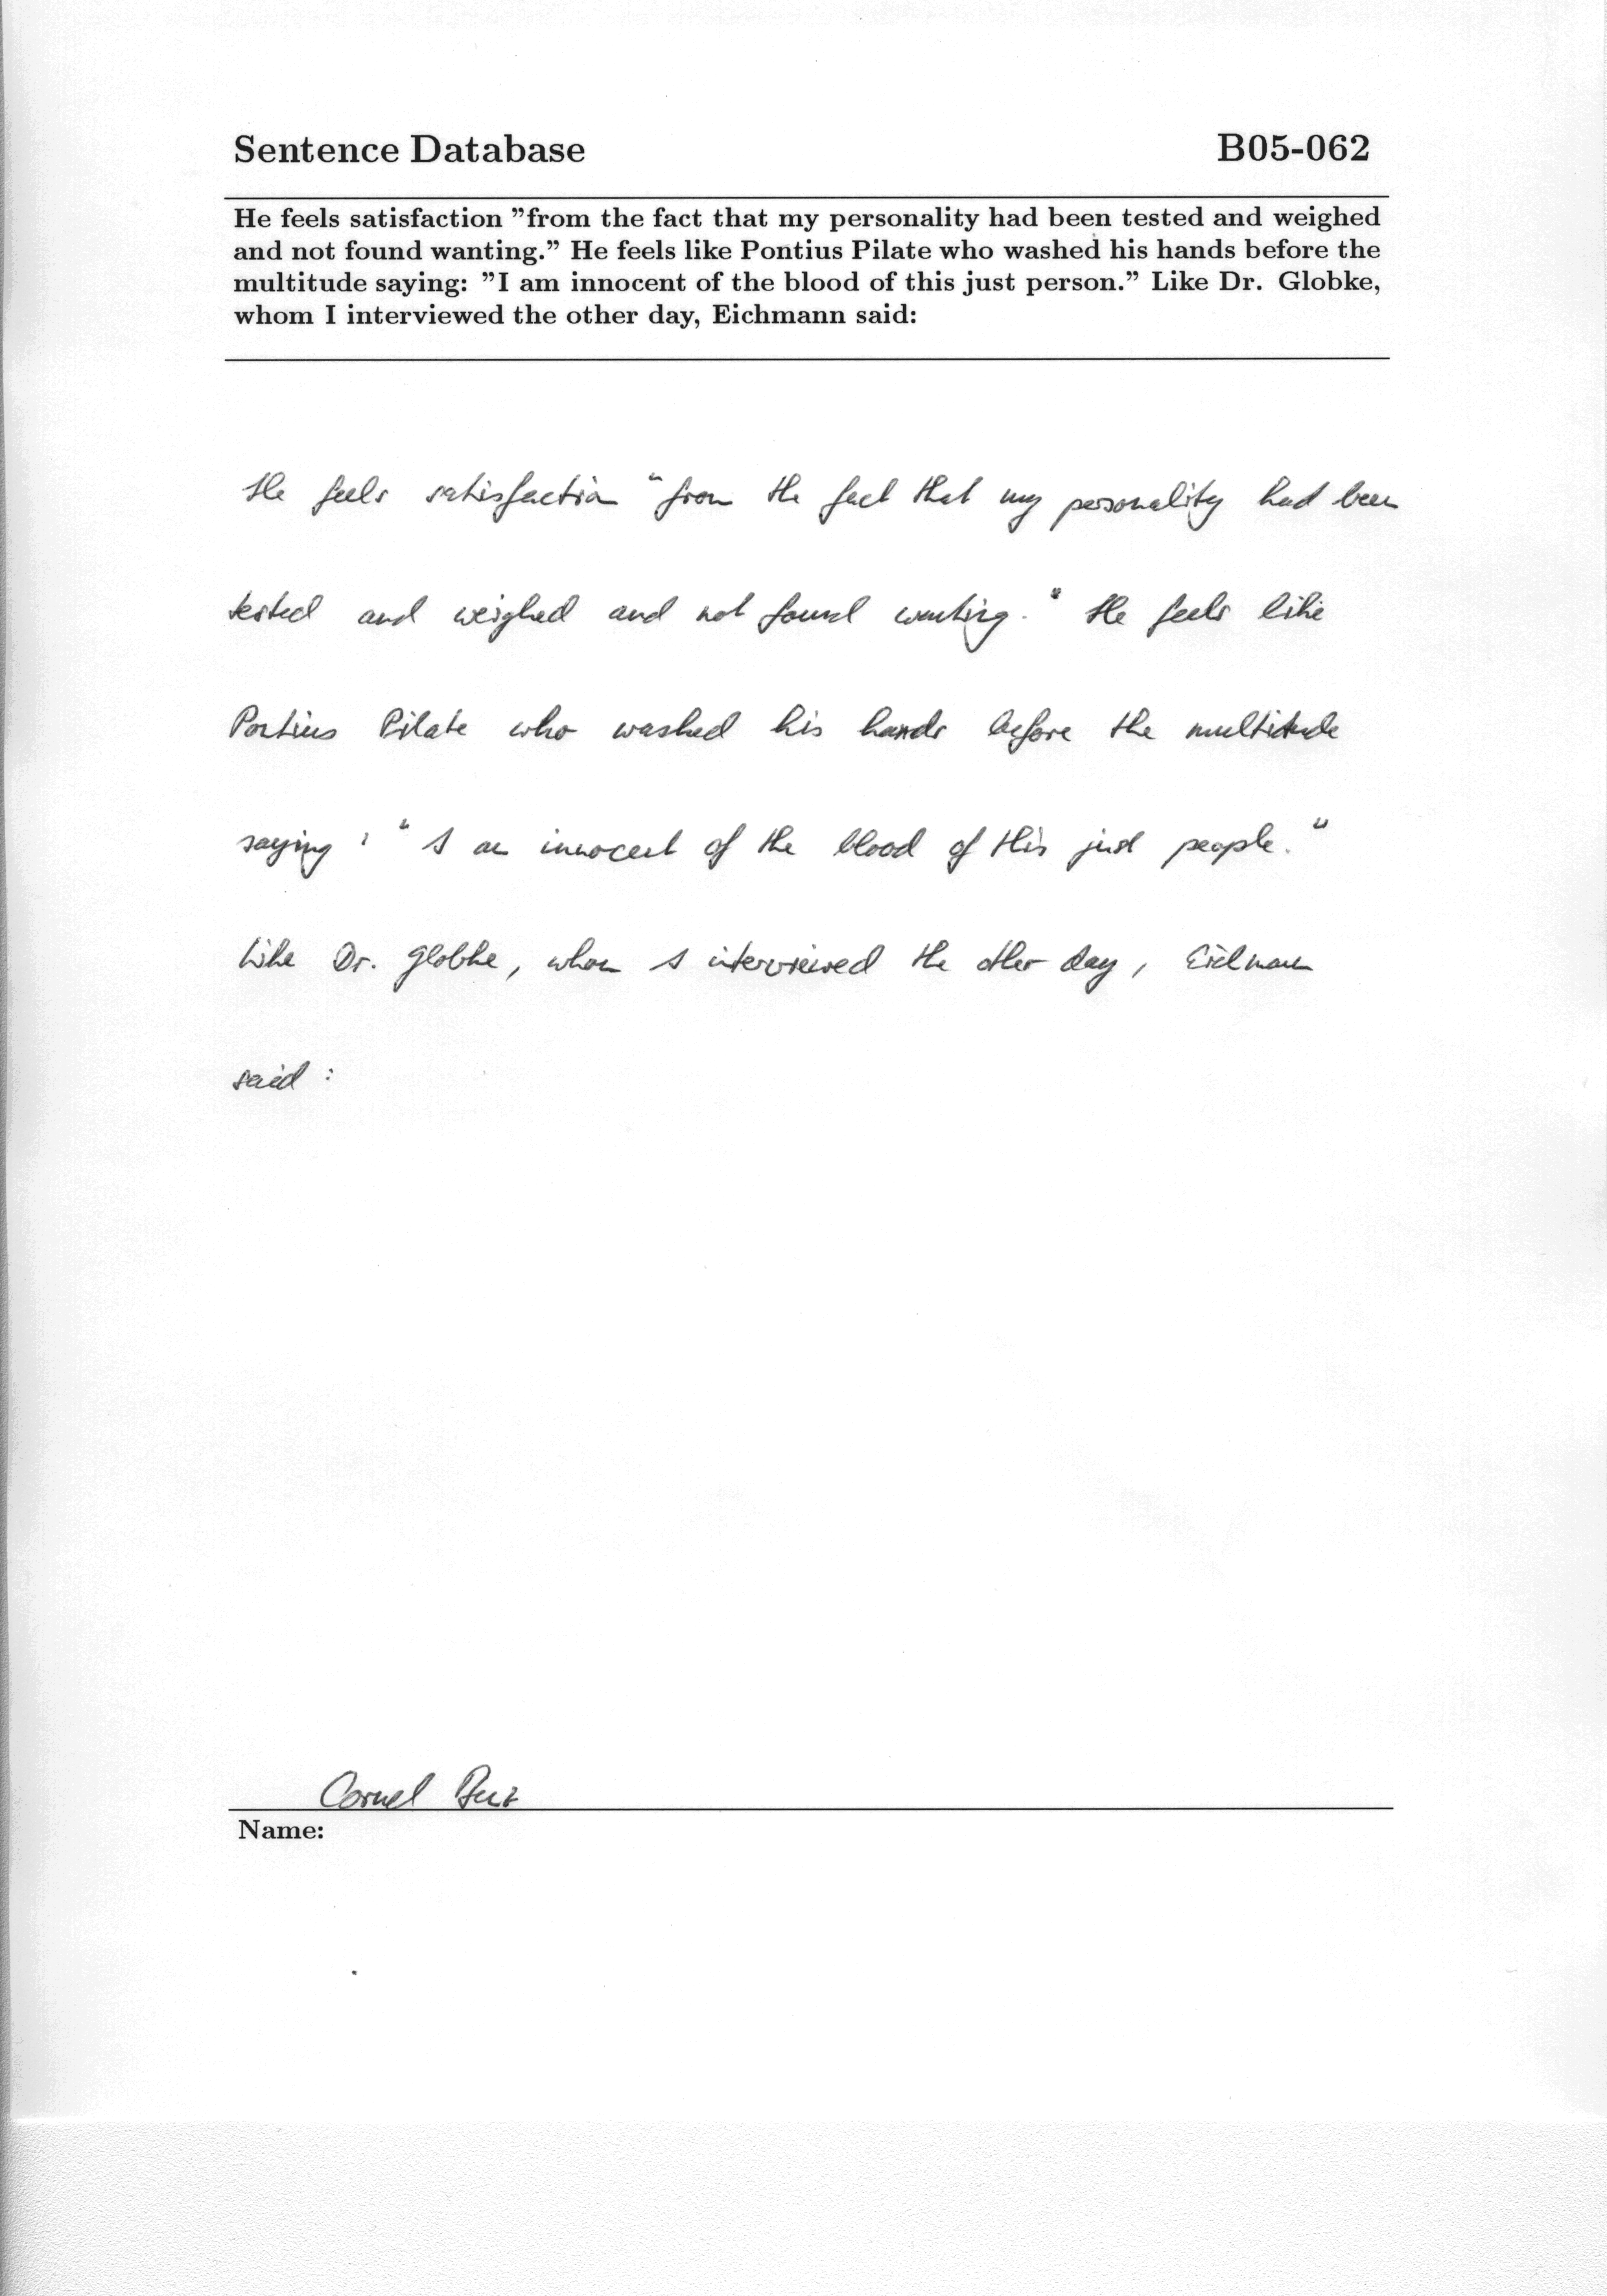 Sentence Database B05-062
He feels satisfaction ”from the fact that my personality had been tested and weighed
and not found wanting.” He feels like Pontius Pilate who washed his hands before the
multitude saying: ”I am innocent of the blood of this just person.” Like Dr. Globke,
whom I interviewed the other day, Eichmann said:
He feels satisfaction "from the fact that my personality had been
tested and weighed and not found wanting." He feels like
Pontius Pilate who washed his hands before the multitude
saying : "I am innocent of the blood of this just people."
Like Dr. Globke, whom I interviewed the other day, Eichmann
said :
Cornel
Name: